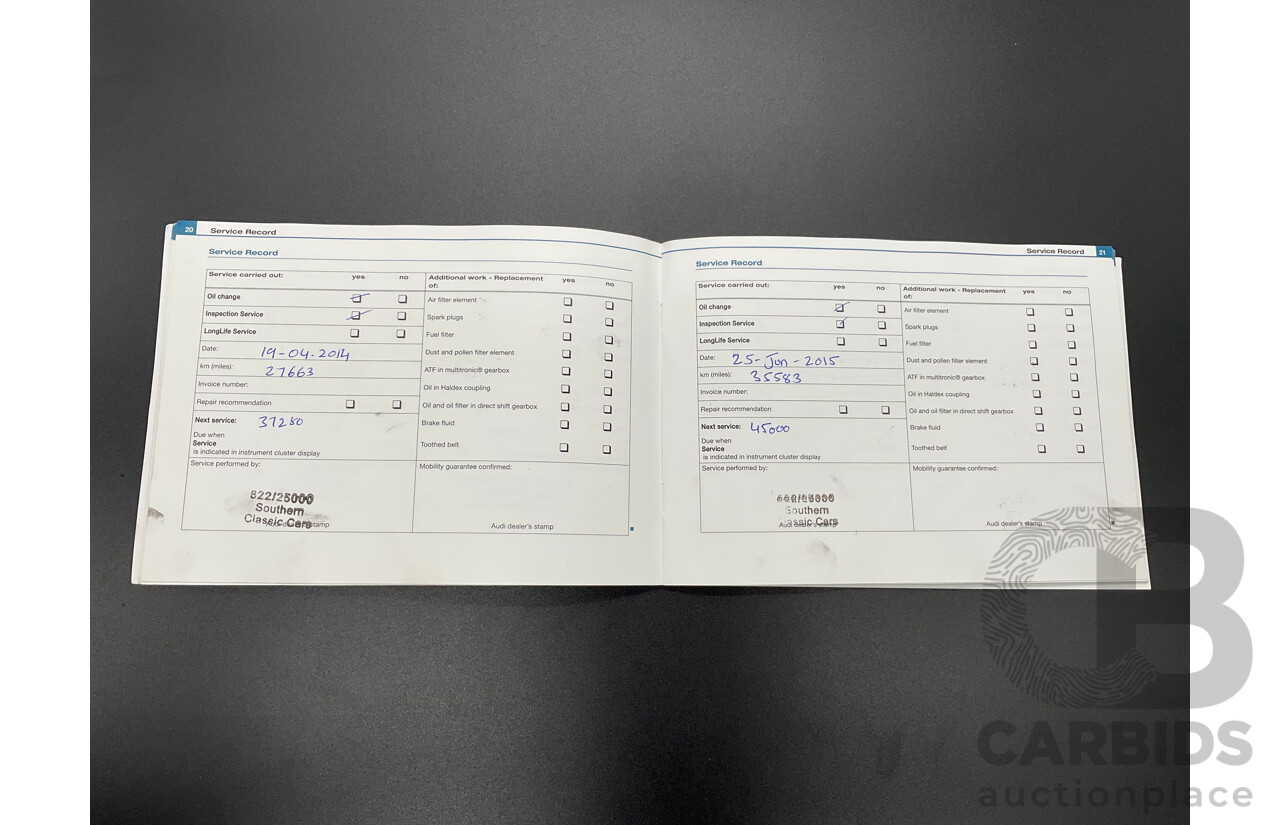 20 Service Record
Service Record
Service carried out: yes no
Oil change
Inspection Service
LongLife Service
Date: 19-04-2014
km (miles): 27663
Invoice number:
Repair recommendation
Next service: 37250
Due when
Service
is indicated in instrument cluster display
Service performed by:
822/25000
Southern
Classic Cars
Additional work - Replacement of: yes no
Air filter element
Spark plugs
Fuel filter
Dust and pollen filter element
ATF in multitronic® gearbox
Oil in Haldex coupling
Oil and oil filter in direct shift gearbox
Brake fluid
Toothed belt
Mobility guarantee confirmed:
Audi dealer's stamp
Service Record 21
Service Record
Service carried out: yes no
Oil change
Inspection Service
LongLife Service
Date: 25-Jun-2015
km (miles): 35583
Invoice number:
Repair recommendation
Next service: 45000
Due when
Service
is indicated in instrument cluster display
Service performed by:
Southern
Cars
Additional work - Replacement of: yes no
Air filter element
Spark plugs
Fuel filter
Dust and pollen filter element
ATF in multitronic® gearbox
Oil in Haldex coupling
Oil and oil filter in direct shift gearbox
Brake fluid
Toothed belt
Mobility guarantee confirmed:
Audi dealer's stamp
CARBIDS
auctionplace